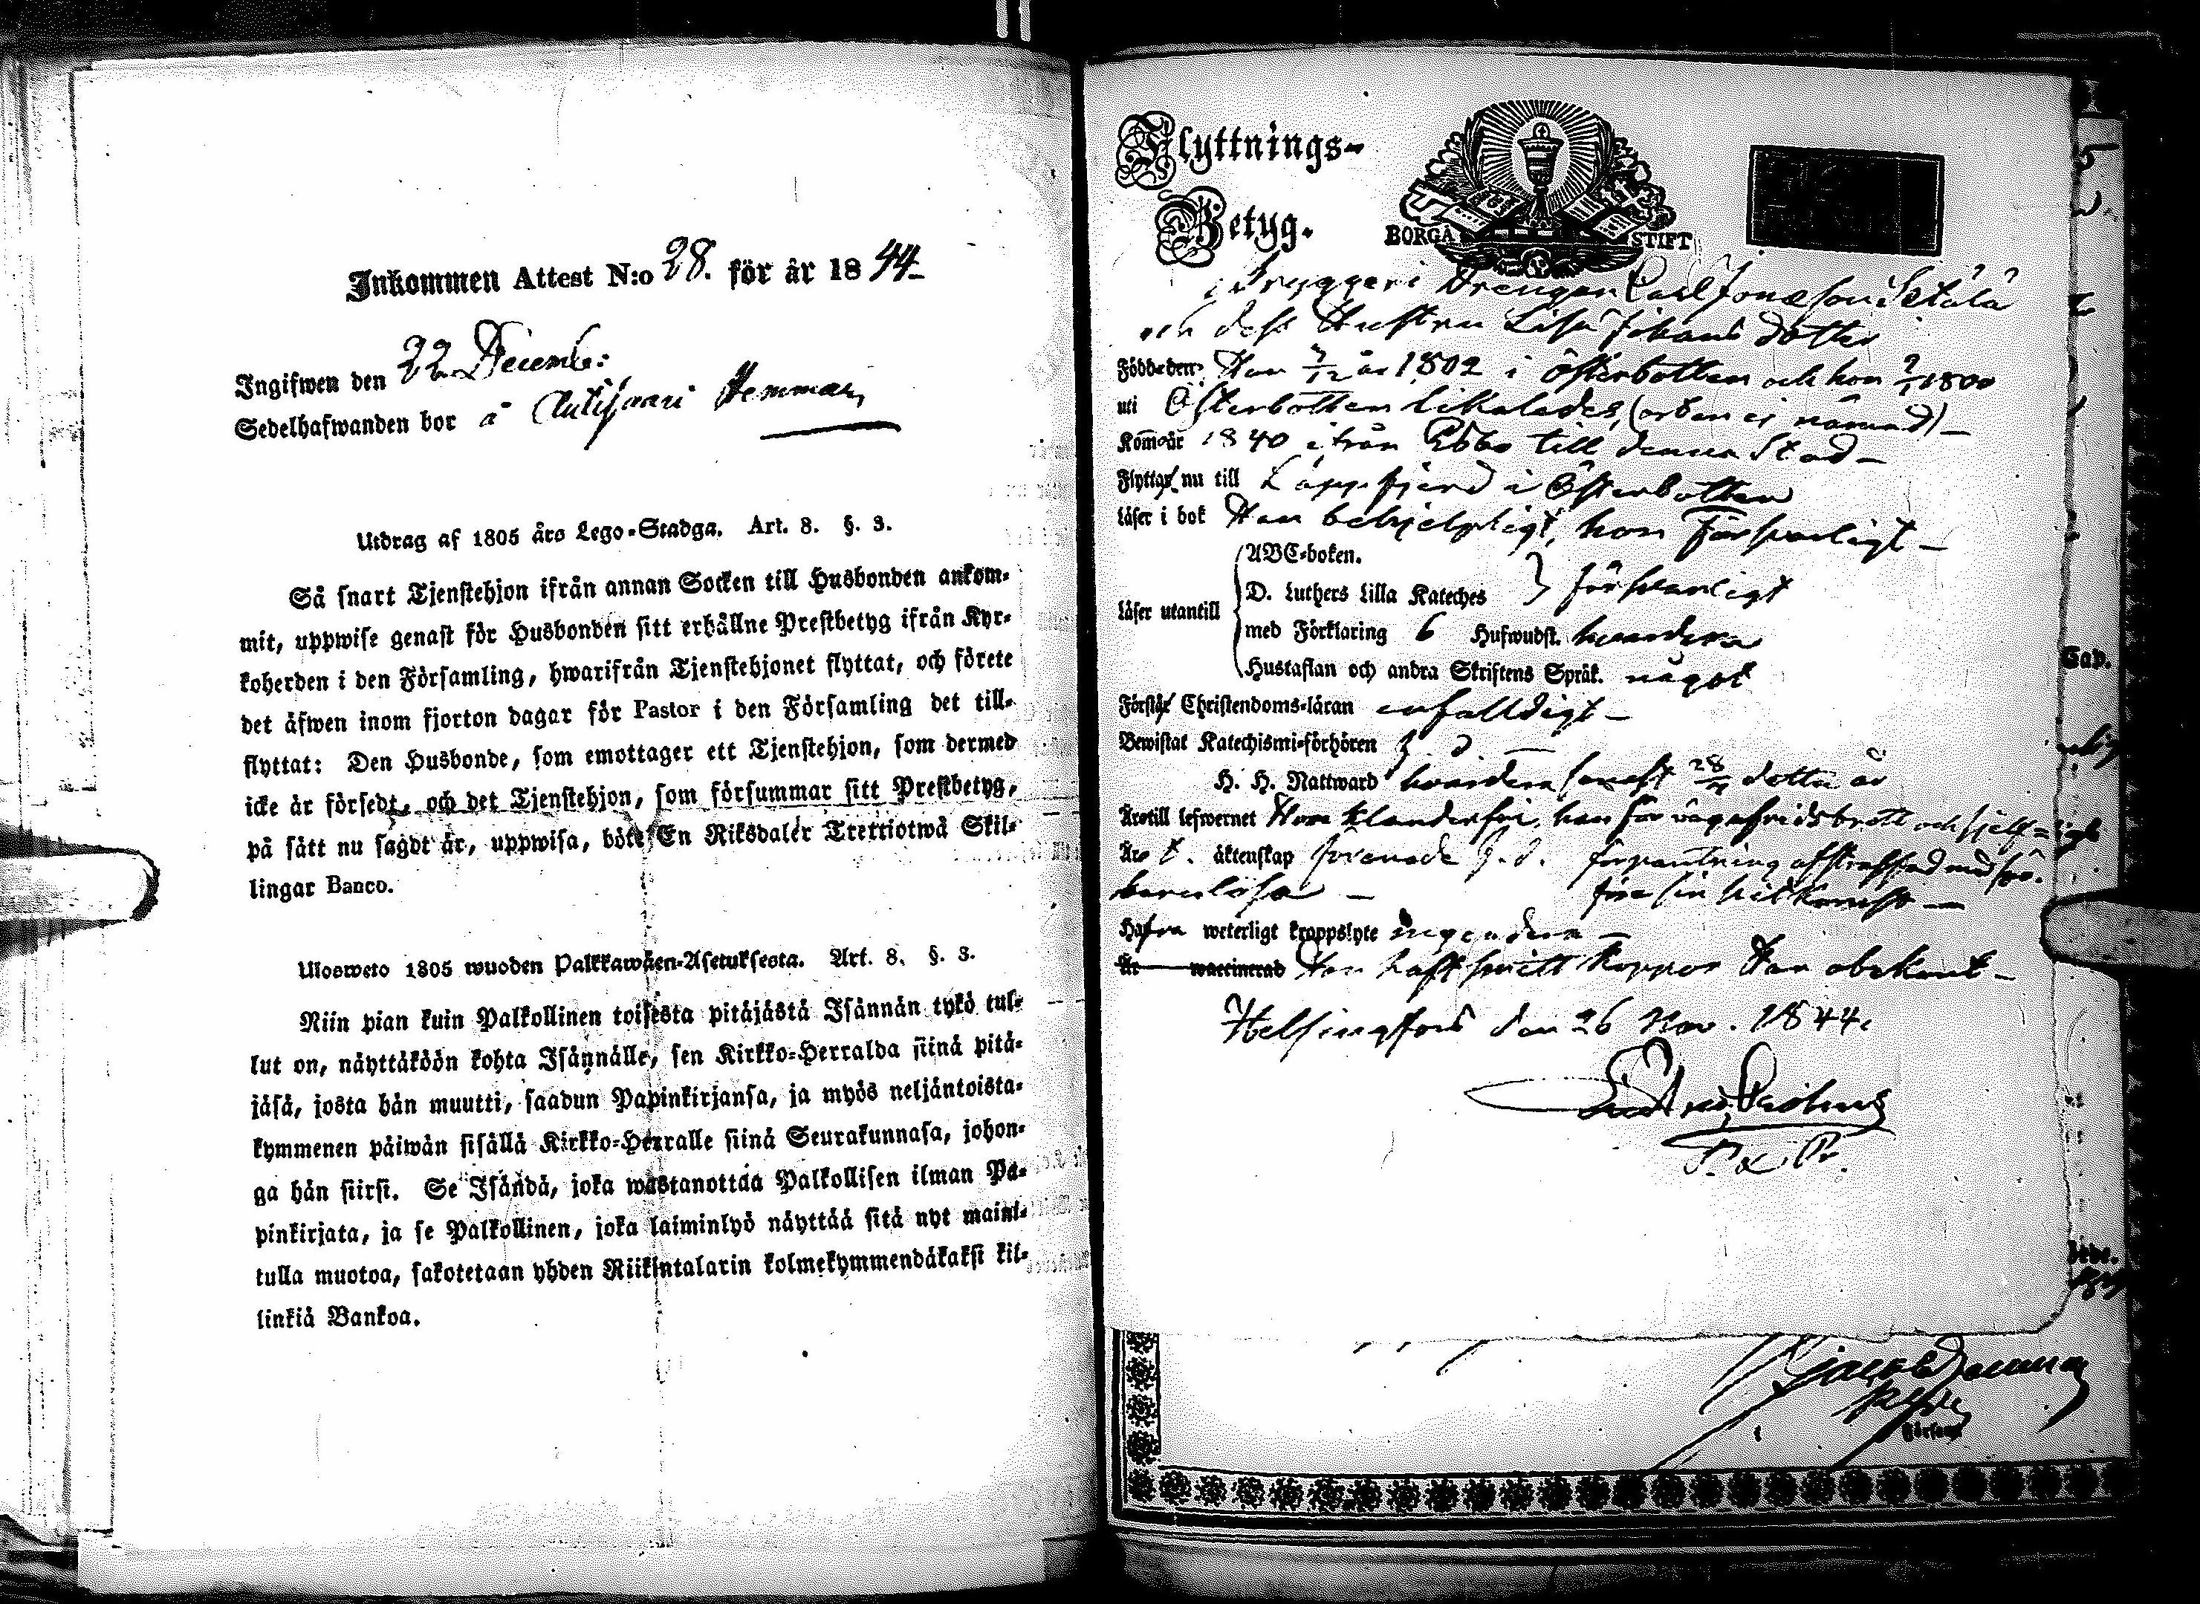 Inkommen Attest N:o 28. för år 1844
Ingifwen den 22 Decemb:
Sedelhafwanden bor å Hemman
Utdrag af 1805 års Lego-Stadga. Art. 8. §. 3.
Så snart Tjenstehjon ifrån annan Socken till Husbonden ankom-
mit, uppwise genast för Husbonden sitt erhållne Prestbetyg ifrån Kyr-
koherden i den Församling, hwarifrån Tjenstehjonet flyttat, och förete
det äfwen inom fjorton dagar för Pastor i den Församling det till-
flyttat: Den Husbonde, som emottager ett Tjenstehjon, som dermed
icke är försedt, och det Tjenstehjon, som försummar sitt Prestbetyg,
på sätt nu sagdt är, uppwisa, böte En Riksdaler Trettiotwå Skil-
lingar Banco.
Ulosweto 1805 wuoden Palkkawäen-Asetuksesta. Art. 8. §. 3.
Niin pian kuin Palkollinen toisesta pitäjästä Isännän tykö tul-
lut on, näyttäköön kohta Isännälle, sen Kirkko-Herralda siinä pitä-
jäsä, josta hän muutti, saadun Papinkirjansa, ja myös neljäntoista-
kymmenen päiwän sisällä Kirkko-Herralle siinä Seurakunnasa, johon-
ga hän siirsi. Se Isändä, joka wastanottaa Palkollisen ilman Pa-
pinkirjata, ja se Palkollinen, joka laiminlyö näyttää sitä nyt maini-
tulla muotoa, sakotetaan yhden Riikintalarin kolmekymmendäkaksi kil-
linkiä Bankoa.
Flyttnings-
Betyg.
BORGÅ STIFT
Bryggeri Drengen Carl Jonasson Setälä
och dess Hustru Lisa Johans dotter
Född den: Han 7/12 år 1802 i Österbotten och hon 2/1 1800
uti Österbotten likaledes, (orten ej nämnd)
Kom år 1840 ifrån Åbo till denna Stad
Flytta nu till Lappfjerd i Österbotten
Läser i bok Han behjelpligt, hon försvarligt
ABC-boken.
Läser utantill D. Luthers Lilla Kateches } försvarligt
med Förklaring 6 Hufwudst. hvardera
Hustaflan och andra Skriftens Språk. något
Förstå Christendoms-läran enfalldigt
Bewistat Katechismi-förhören
H. H. Nattward hvardera senast 28/7 detta år
Äro till lefwernet Hon klanderfri, han för vägafridsbrott och sjelf-
Äro t. äktenskap förenade förpantning afstraffad med spö.
barnlösa före sin hitkomst
Hafva weterligt kroppslyte ingendera
Är waccinerad Hon haft smittkoppor Han obekant
Helsingfors den 26 Nov. 1844.
Gad.
Förfaml